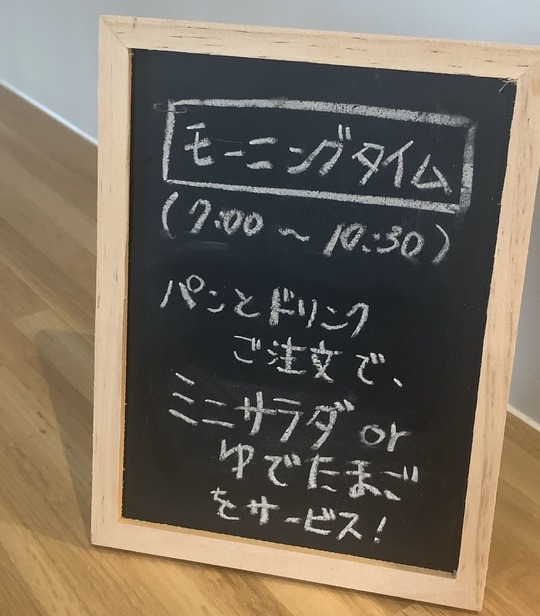 モーニングタイム
(7:00 〜 10:30)
パンとドリンク
ご注文で、
ミニサラダ or
ゆでたまご
をサービス!